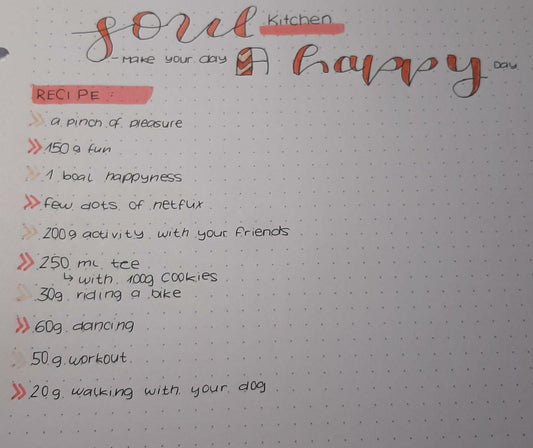 soul Kitchen
- Make your day A happy Day
RECIPE :
a pinch of pleasure
150 g fun
1 boal happyness
few dots of netflix
200g activity with your friends
250 mL tee
↳ with 100g cookies
30g riding a bike
60g dancing
50 g workout
20g walking with your dog